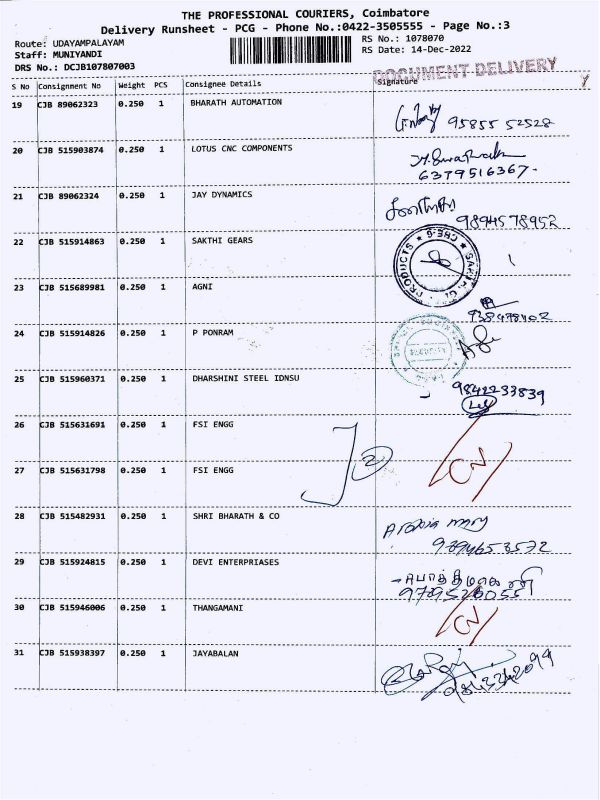 THE PROFESSIONAL COURIERS, Coimbatore
Delivery Runsheet - PCG - Phone No.:0422-3505555 - Page No.:3
Route: UDAYAMPALAYAM
RS No.: 1078070
Staff: MUNIYANDI
RS Date: 14-Dec-2022
DRS No.: DCJB107807003
DOCUMENT DELIVERY
S No Consignment No Weight PCS Consignee Details Signature
19 CJB 89062323 0.250 1 BHARATH AUTOMATION
95855 52528
20 CJB 515903874 0.250 1 LOTUS CNC COMPONENTS
6379516367-
21 CJB 89062324 0.250 1 JAY DYNAMICS
9894578952
22 CJB 515914863 0.250 1 SAKTHI GEARS
PRODUCTS ★ CBE-6 ★
23 CJB 515689981 0.250 1 AGNI
24 CJB 515914826 0.250 1 P PONRAM
25 CJB 515960371 0.250 1 DHARSHINI STEEL IDNSU
9842233839
26 CJB 515631691 0.250 1 FSI ENGG
2
27 CJB 515631798 0.250 1 FSI ENGG
28 CJB 515482931 0.250 1 SHRI BHARATH & CO
mary
9894653572
29 CJB 515924815 0.250 1 DEVI ENTERPRIASES
30 CJB 515946006 0.250 1 THANGAMANI
31 CJB 515938397 0.250 1 JAYABALAN